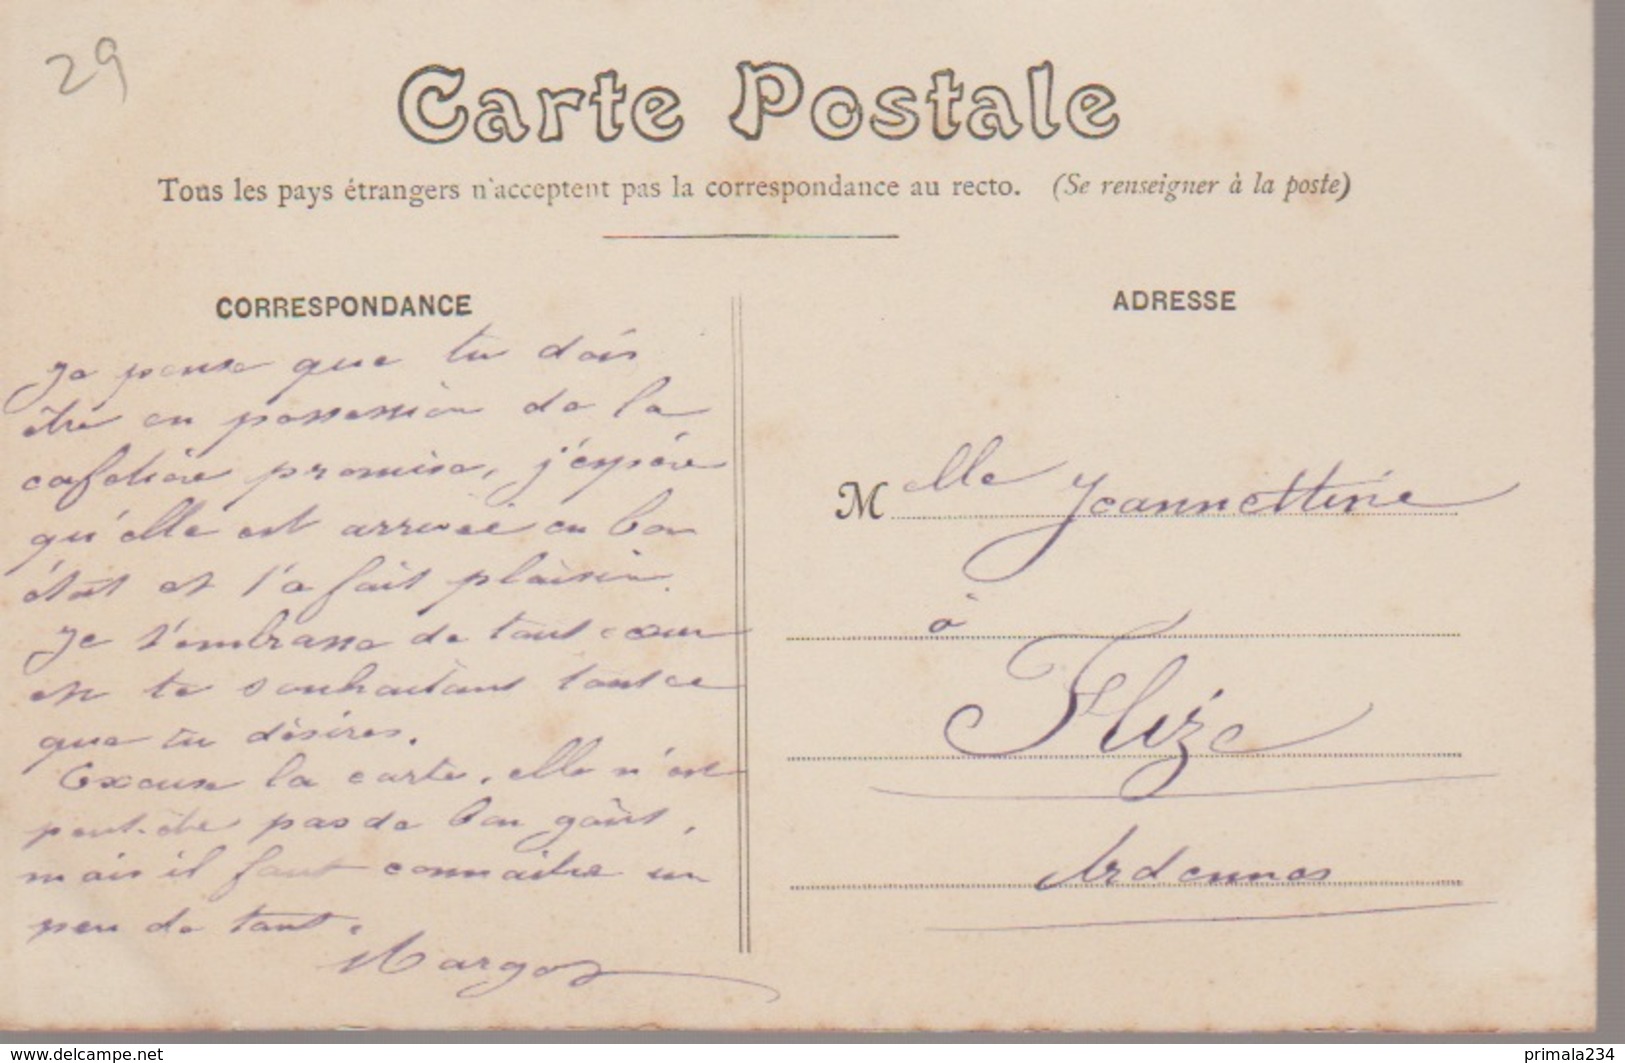 29
Carte Postale
Tous les pays étrangers n'acceptent pas la correspondance au recto. (Se renseigner à la poste)
CORRESPONDANCE
Je pense que tu dois
être en possession de la
cafetière promise, j'espère
qu'elle est arrivée en bon
état et t'a fait plaisir.
Je t'embrasse de tout cœur
en te souhaitant tout ce
que tu désires.
Excuse la carte, elle n'est
peut-être pas de bon goût,
mais il faut connaître un
peu de tout.
Margot
ADRESSE
Melle Jeannettine
à
Flize
Ardennes
www.delcampe.net
primala234